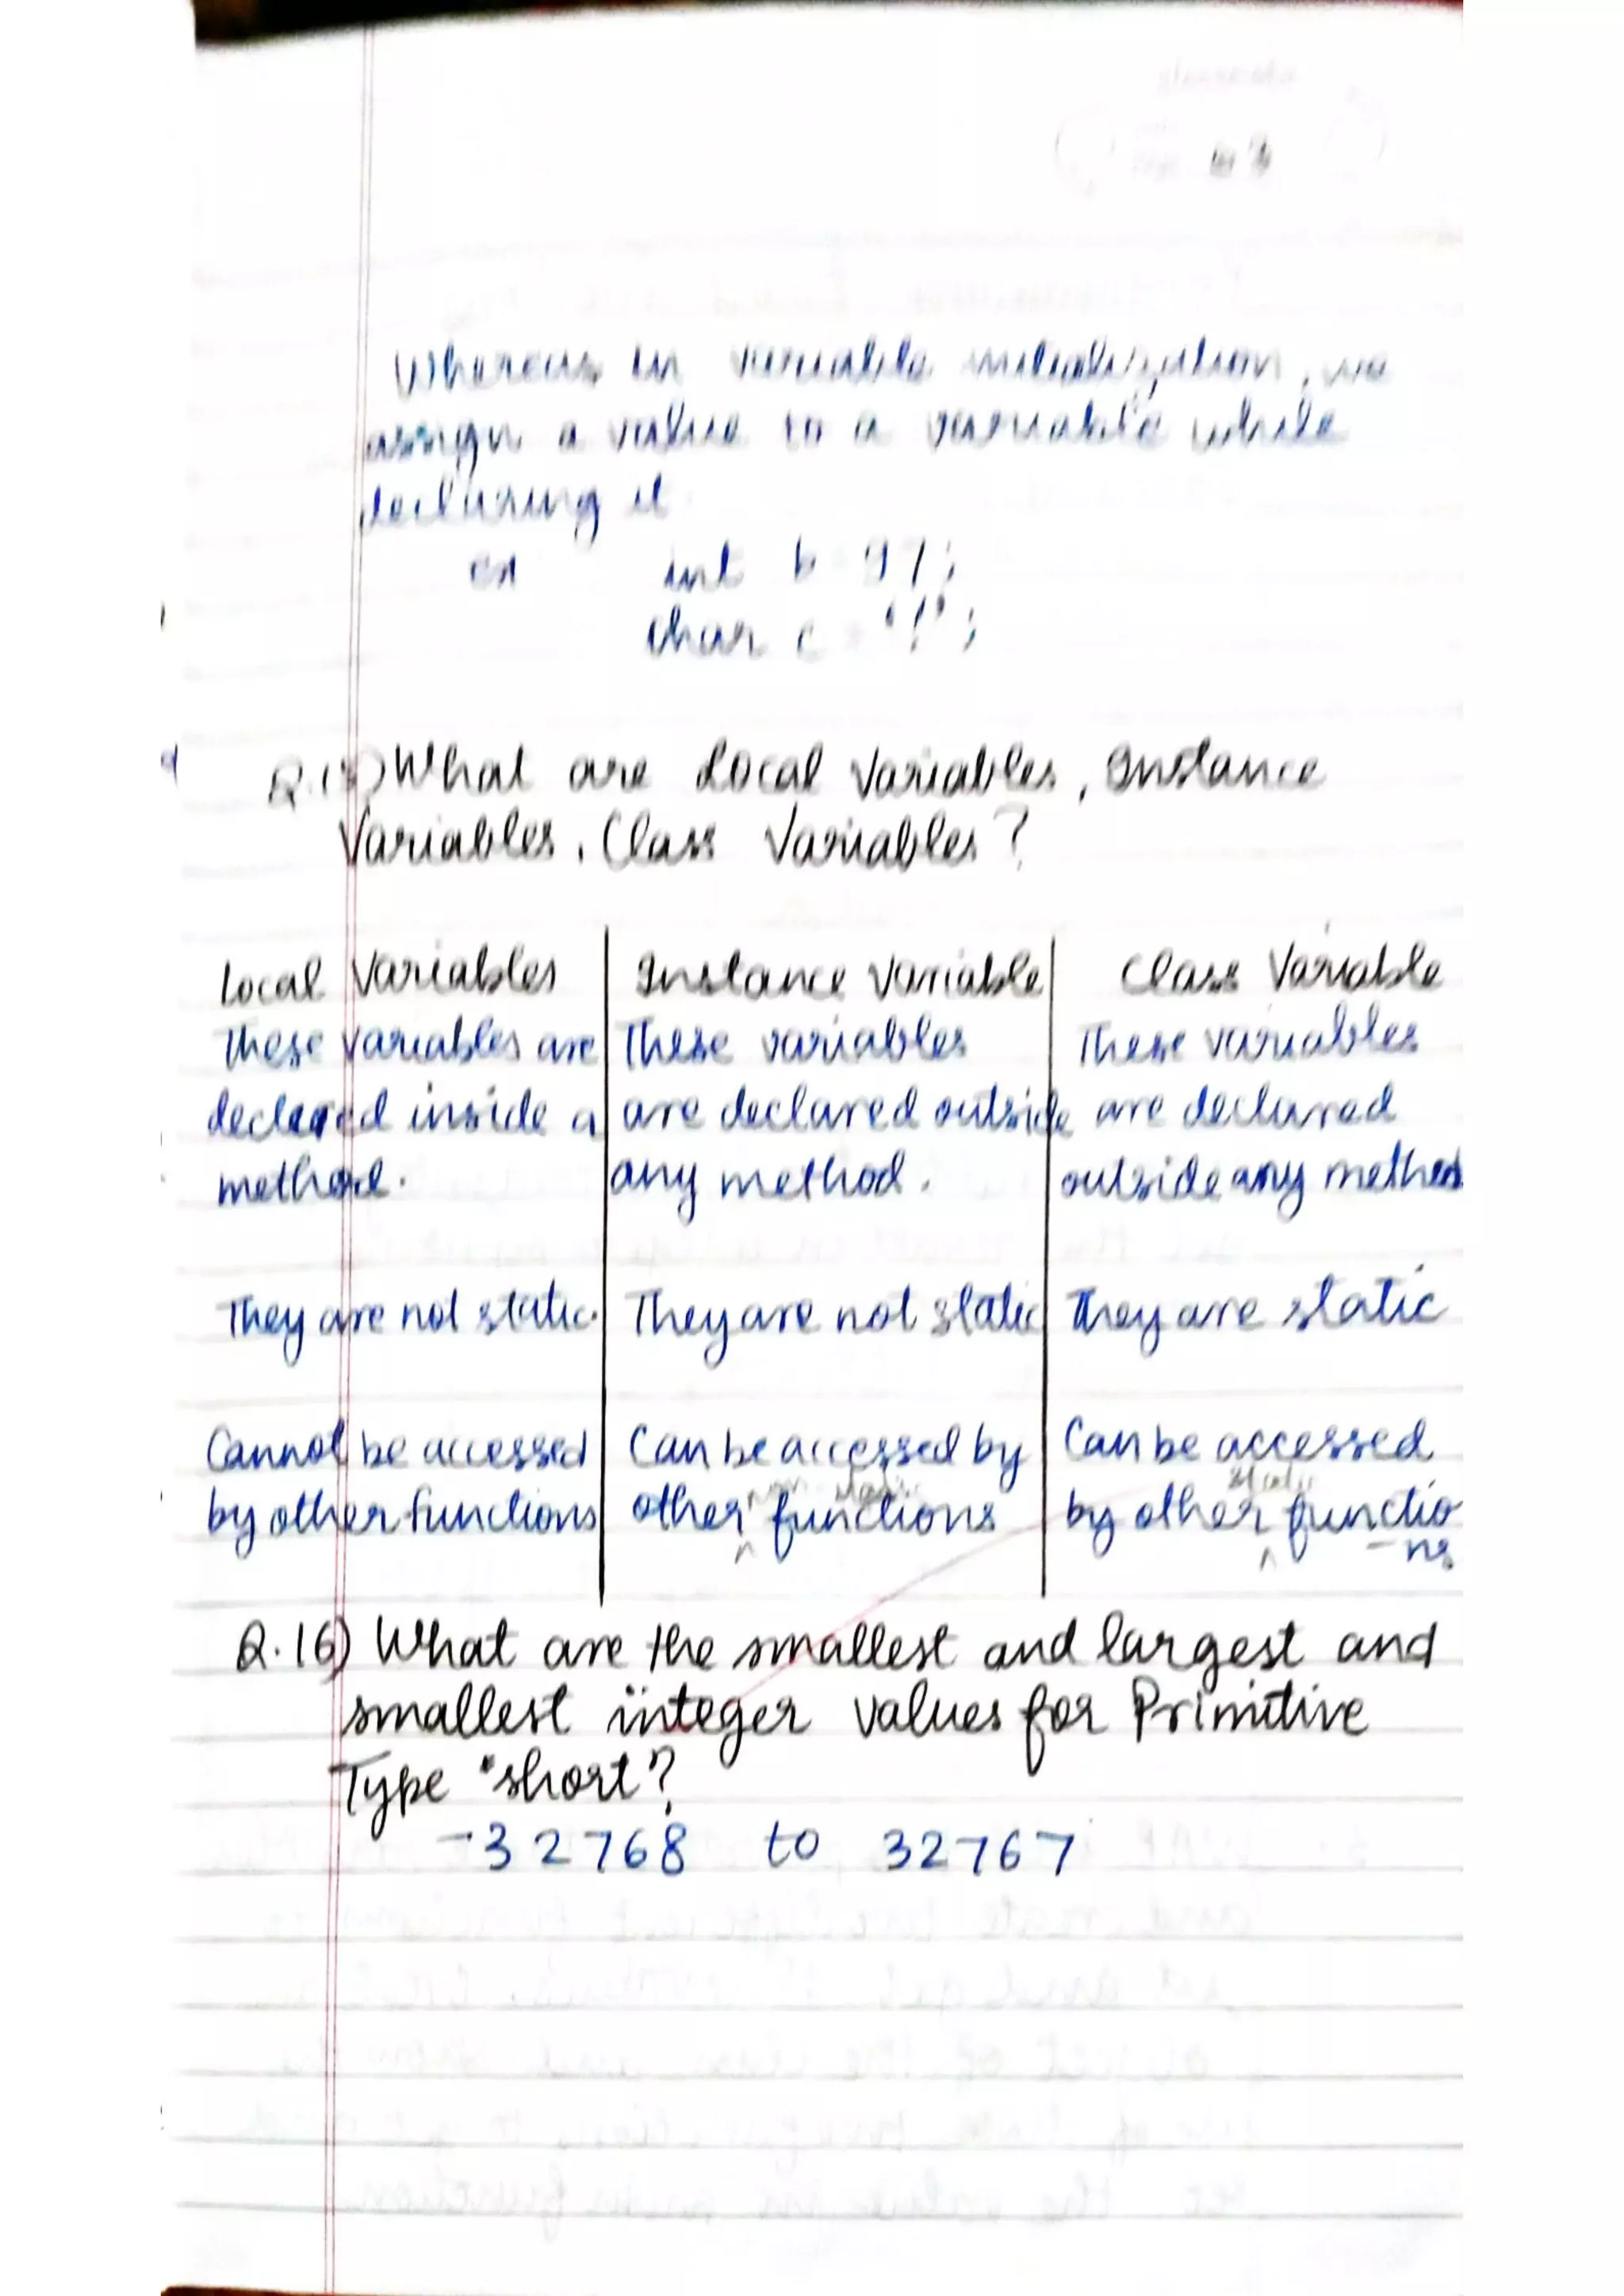 Whereas in variable initialization, we
assign a value to a variable while
declaring it.
ex int b = 97;
char c = '!';
Q.15) What are Local Variables, Instance
Variables, Class Variables?
Local Variables
These variables are
declared inside a
method.
They are not static.
Cannot be accessed
by other functions
Instance Variable
These variables
are declared outside
any method.
They are not static
Can be accessed by
non-static
other functions
Class Variable
These variables
are declared
outside any method
They are static
Can be accessed
static
by other functio
-ns
Q.16) What are the smallest and largest and
smallest integer values for Primitive
Type "short?
-32768 to 32767